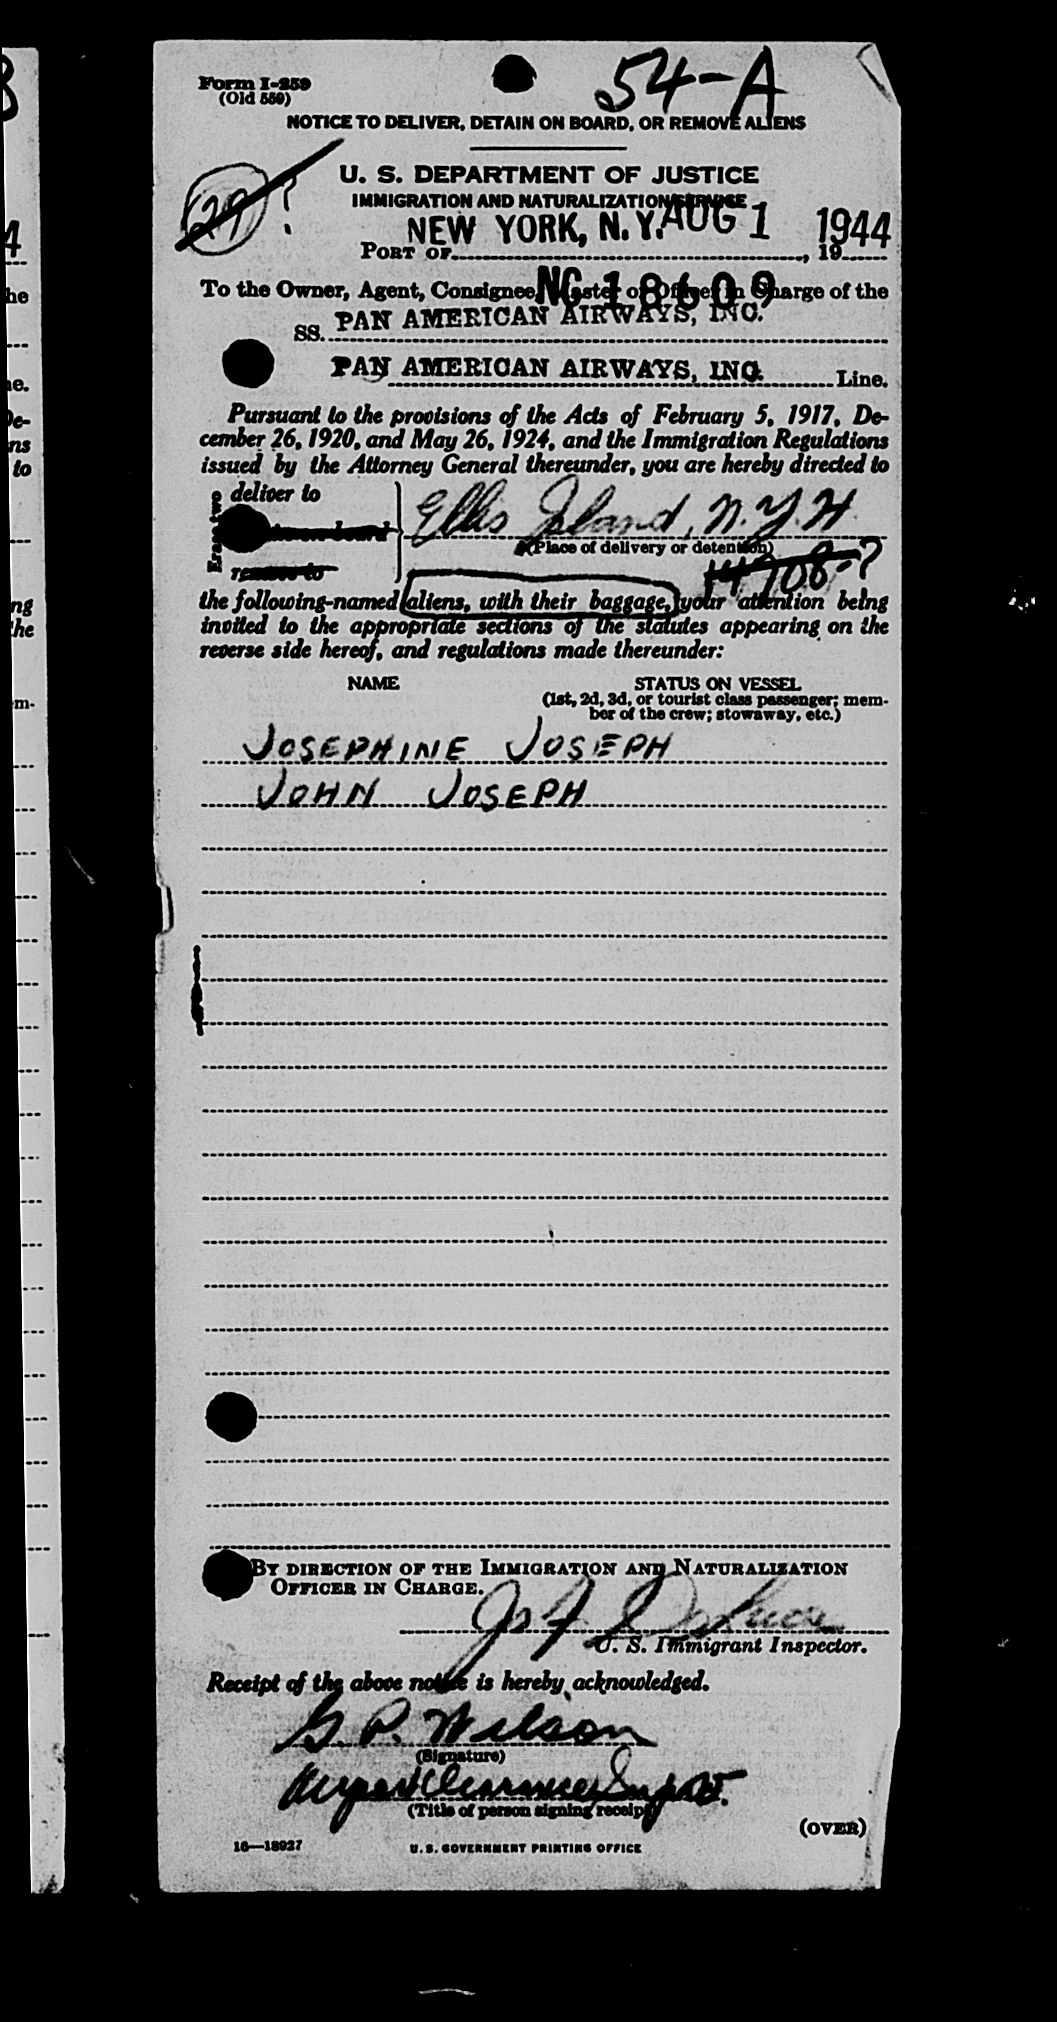 54-A
Form I-259
(Old 559)
NOTICE TO DELIVER, DETAIN ON BOARD, OR REMOVE ALIENS
U. S. DEPARTMENT OF JUSTICE
29 ?
IMMIGRATION AND NATURALIZATION SERVICE
NEW YORK, N.Y. AUG 1 1944
PORT OF , 19
To the Owner, Agent, Consignee, Master or Officer in Charge of the
NC 18609
SS. PAN AMERICAN AIRWAYS, INC.
PAN AMERICAN AIRWAYS, INC. Line.
Pursuant to the provisions of the Acts of February 5, 1917, De-
cember 26, 1920, and May 26, 1924, and the Immigration Regulations
issued by the Attorney General thereunder, you are hereby directed to
Erase two
deliver to
on board
remove to
Ellis Island, N.Y.H.
(Place of delivery or detention)
14708-?
the following-named aliens, with their baggage, your attention being
invited to the appropriate sections of the statutes appearing on the
reverse side hereof, and regulations made thereunder:
NAME STATUS ON VESSEL
(1st, 2d, 3d, or tourist class passenger; mem-
ber of the crew; stowaway, etc.)
JOSEPHINE JOSEPH
JOHN JOSEPH
BY DIRECTION OF THE IMMIGRATION AND NATURALIZATION
OFFICER IN CHARGE.
U. S. Immigrant Inspector.
Receipt of the above notice is hereby acknowledged.
G. P. Wilson
(Signature)
(Title of person signing receipt)
(OVER)
16—18927 U. S. GOVERNMENT PRINTING OFFICE